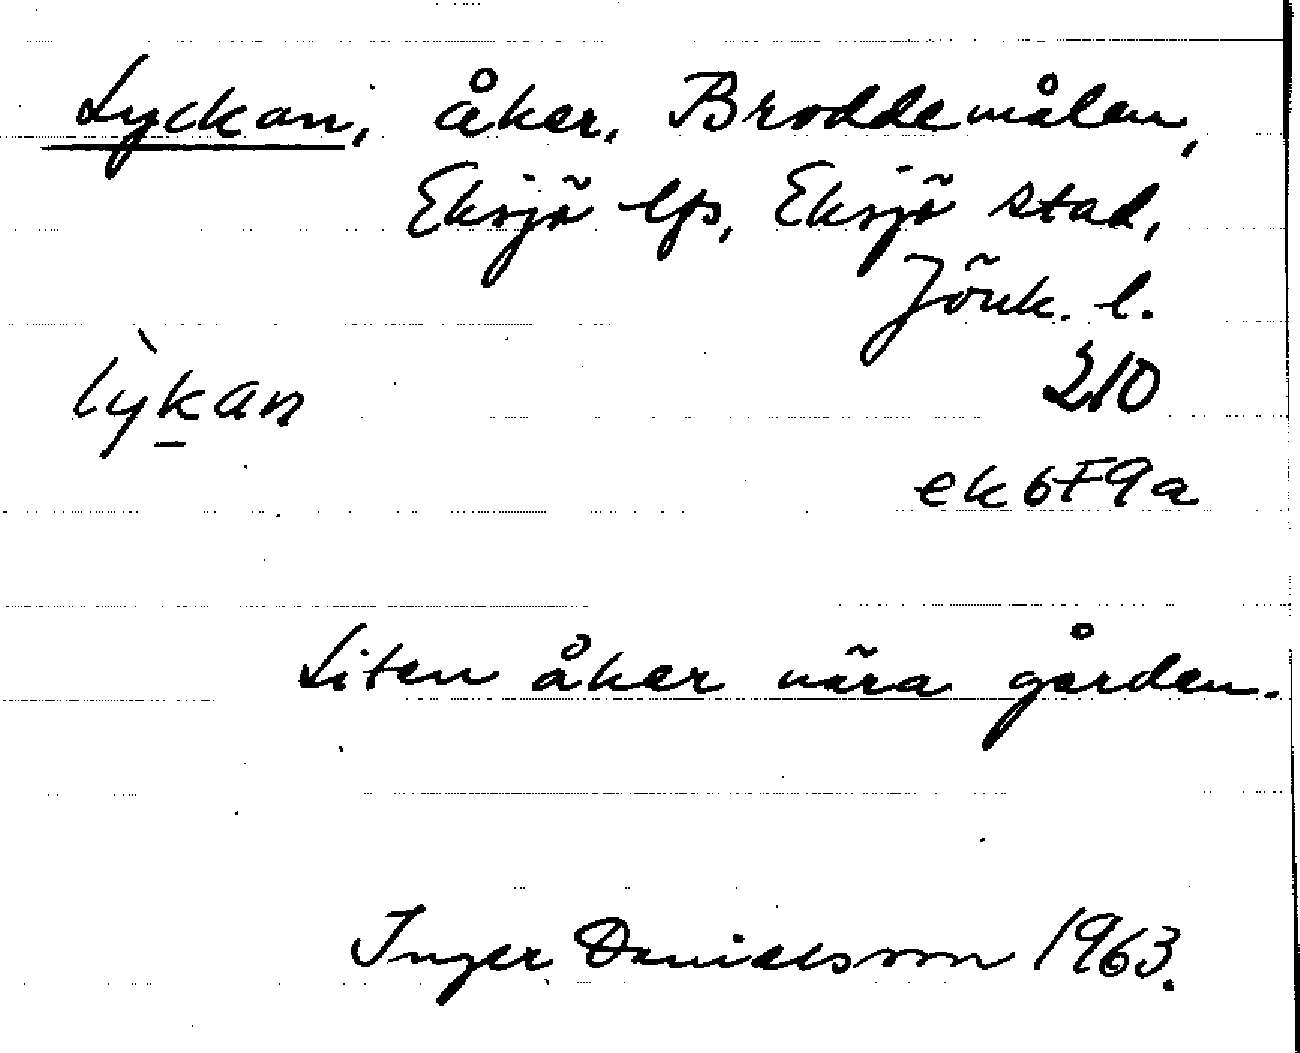 Lyckan, åker, Broddemålen,
Eksjö lfs, Eksjö stad,
Jönk. l.
lỳkan
210
ek6F9a
Liten åker nära gården.
Inger Danielsson 1963.